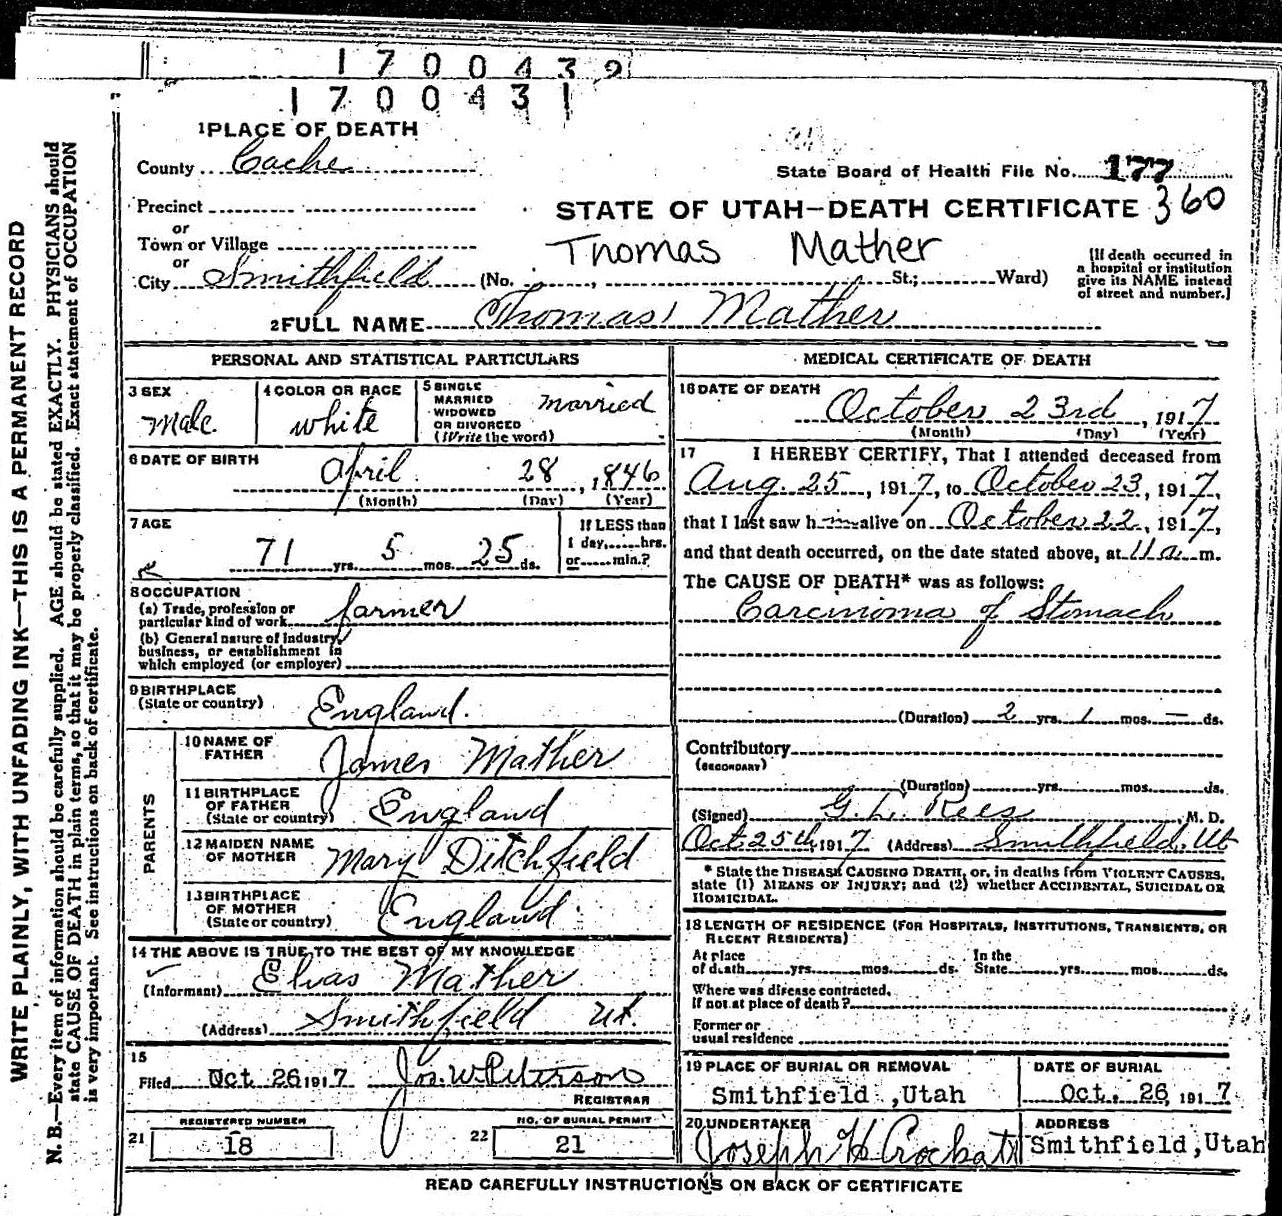 1700432
1700431
1 PLACE OF DEATH
County Cache
State Board of Health File No. 177
Precinct
or
Town or Village
or
City Smithfield (No. , St.; Ward)
STATE OF UTAH—DEATH CERTIFICATE 360
Thomas Mather
[If death occurred in
a hospital or institution
give its NAME instead
of street and number.]
2 FULL NAME Thomas Mather
PERSONAL AND STATISTICAL PARTICULARS
3 SEX
Male
4 COLOR OR RACE
white
5 SINGLE
MARRIED
WIDOWED
OR DIVORCED
(Write the word)
married
6 DATE OF BIRTH
April 28, 1846
(Month) (Day) (Year)
7 AGE
71 yrs. 5 mos. 25 ds.
If LESS than
1 day, hrs.
or min.?
8 OCCUPATION
(a) Trade, profession or
particular kind of work farmer
(b) General nature of industry,
business, or establishment in
which employed (or employer)
9 BIRTHPLACE
(State or country) England.
PARENTS
10 NAME OF
FATHER James Mather
11 BIRTHPLACE
OF FATHER
(State or country) England
12 MAIDEN NAME
OF MOTHER Mary Ditchfield
13 BIRTHPLACE
OF MOTHER
(State or country) England
14 THE ABOVE IS TRUE TO THE BEST OF MY KNOWLEDGE
(Informant) Elvas Mather
(Address) Smithfield Ut.
15
Filed Oct 26 1917 Jos. W. Peterson
REGISTRAR
REGISTERED NUMBER
21 18
NO. OF BURIAL PERMIT
22 21
MEDICAL CERTIFICATE OF DEATH
16 DATE OF DEATH
October 23rd, 1917
(Month) (Day) (Year)
17 I HEREBY CERTIFY, That I attended deceased from
Aug. 25, 1917, to October 23, 1917,
that I last saw him alive on October 22, 1917,
and that death occurred, on the date stated above, at 11 a. m.
The CAUSE OF DEATH* was as follows:
Carcinoma of Stomach
(Duration) 2 yrs. 1 mos. — ds.
Contributory
(SECONDARY)
(Duration) yrs. mos. ds.
(Signed) G. L. Rees M. D.
Oct. 25th, 1917 (Address) Smithfield, Ut
* State the DISEASE CAUSING DEATH, or, in deaths from VIOLENT CAUSES,
state (1) MEANS OF INJURY; and (2) whether ACCIDENTAL, SUICIDAL OR
HOMICIDAL.
18 LENGTH OF RESIDENCE (FOR HOSPITALS, INSTITUTIONS, TRANSIENTS, OR
RECENT RESIDENTS)
At place
of death yrs. mos. ds.
In the
State yrs. mos. ds.
Where was disease contracted,
if not at place of death?
Former or
usual residence
19 PLACE OF BURIAL OR REMOVAL
Smithfield ,Utah
DATE OF BURIAL
Oct. 26, 1917
20 UNDERTAKER
Joseph H
ADDRESS
Smithfield,Utah
READ CAREFULLY INSTRUCTIONS ON BACK OF CERTIFICATE
WRITE PLAINLY, WITH UNFADING INK—THIS IS A PERMANENT RECORD
N. B.—Every item of information should be carefully supplied. AGE should be stated EXACTLY. PHYSICIANS should
state CAUSE OF DEATH in plain terms, so that it may be properly classified. Exact statement of OCCUPATION
is very important. See instructions on back of certificate.